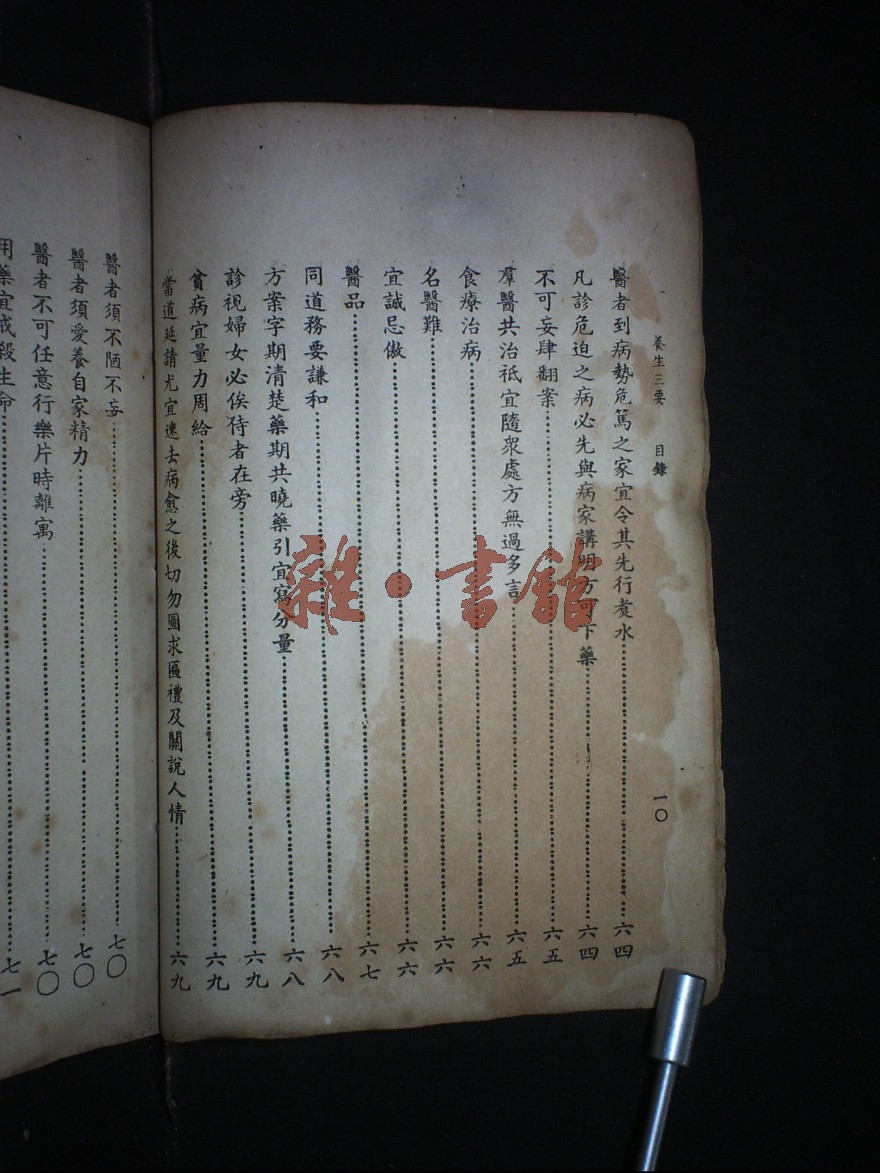 養生三要 目錄 一〇
醫者到病勢危篤之家宜令其先行煑水……六四
凡診危迫之病必先與病家講明方可下藥……六四
不可妄肆翻案……六五
羣醫共治祗宜隨眾處方無過多言……六五
食療治病……六六
名醫難……六六
宜誠忌傲……六六
醫品……六七
同道務要謙和……六八
方案字期清楚藥期共曉藥引宜寫分量……六八
診視婦女必俟侍者在旁……六九
貧病宜量力周給……六九
當道延請尤宜速去病愈之後切勿圖求匾禮及關說人情……六九
醫者須不陋不妄……七〇
醫者須愛養自家精力……七〇
醫者不可任意行樂片時離寓……七〇
用藥宜戒殺生命……七一
雜·書館